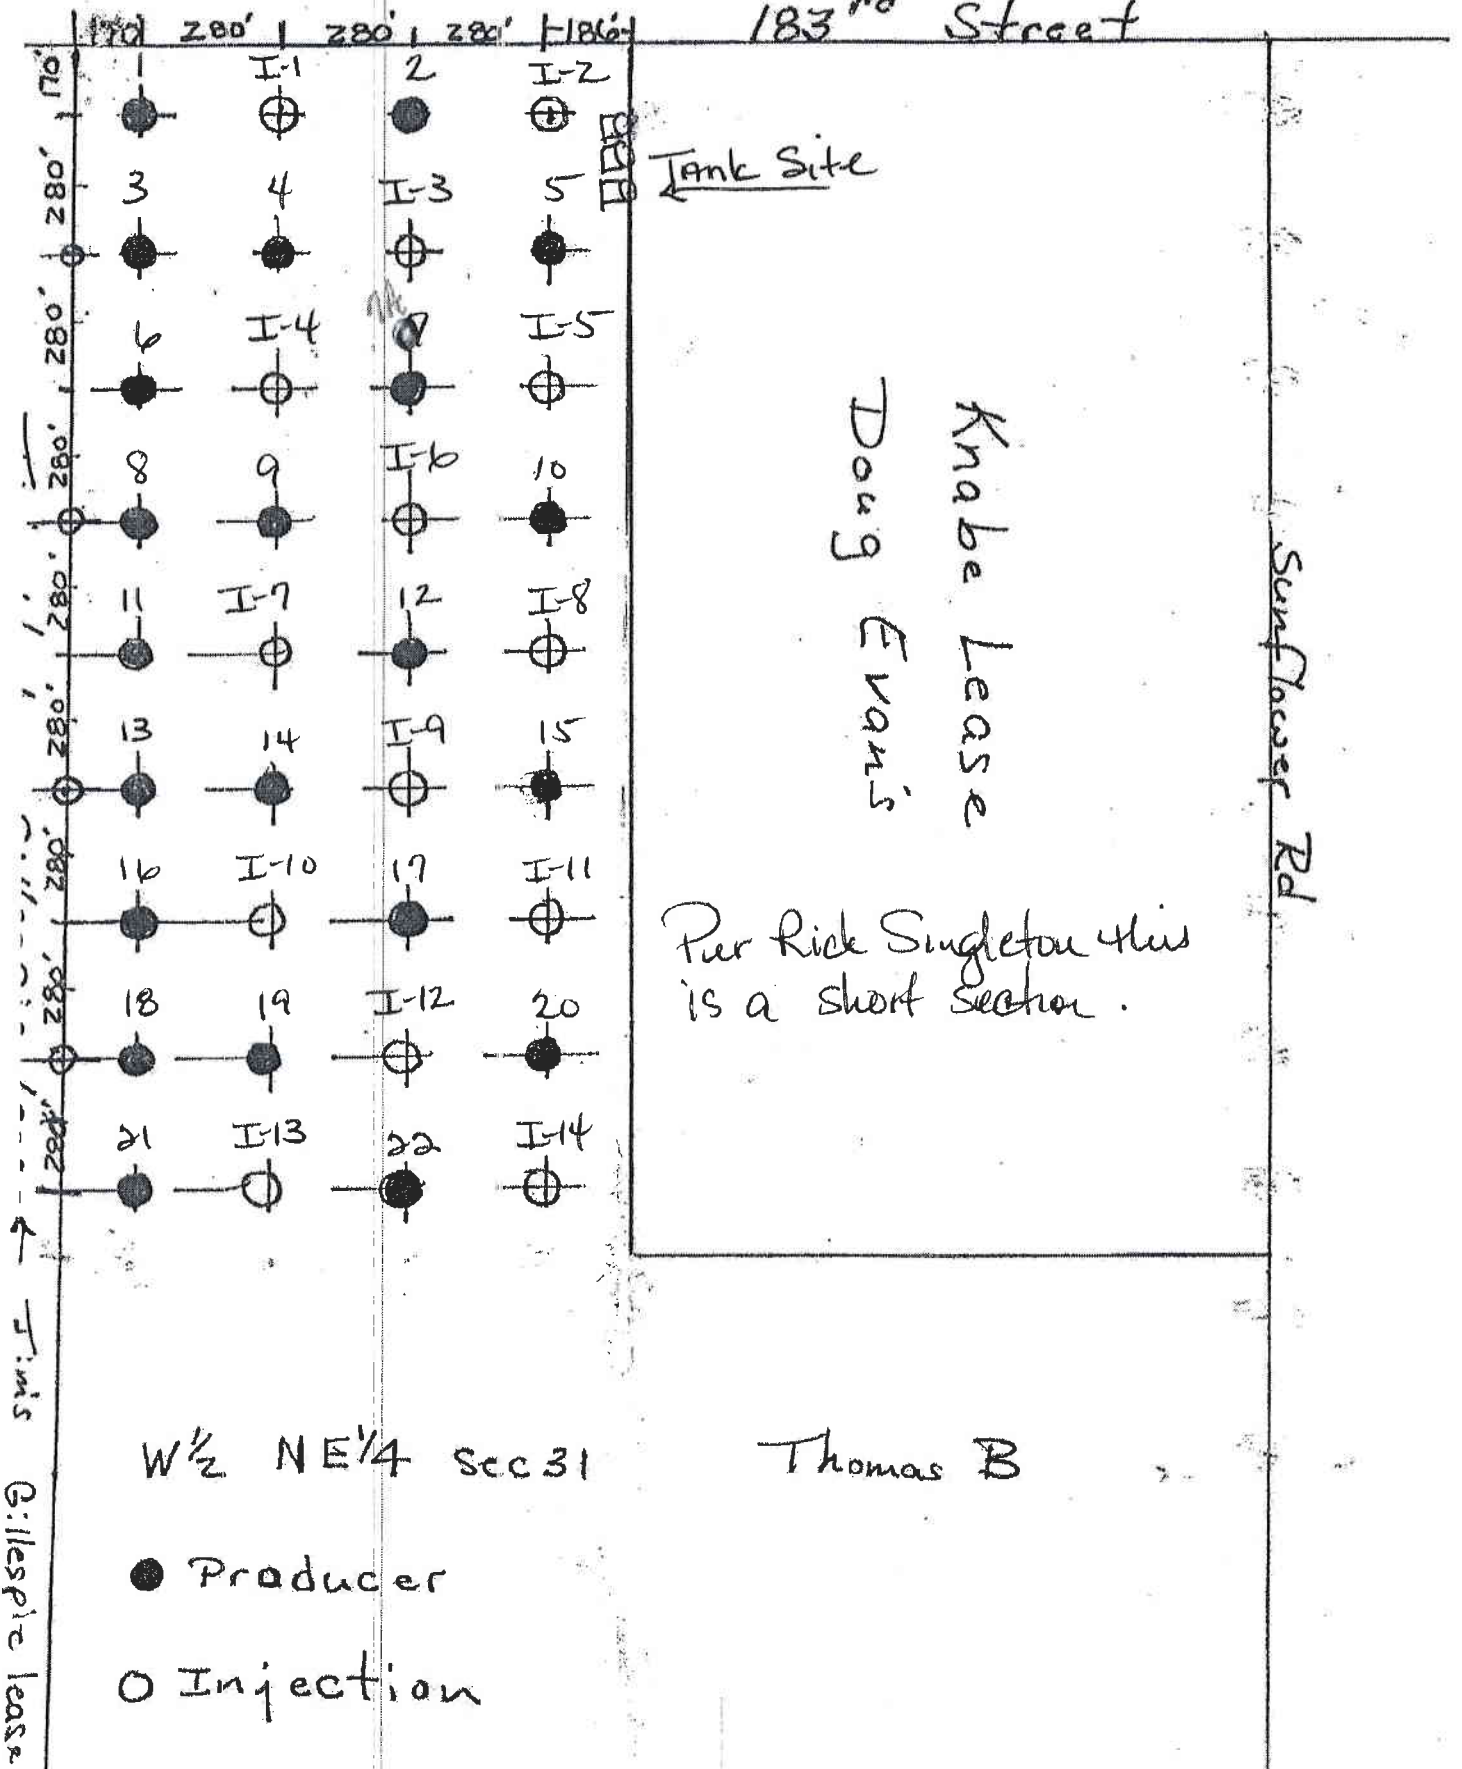 170' 280' 280' 280' 186' 183rd Street
170'
1 I-1 2 I-2
Tank Site
280'
3 4 I-3 5
280'
6 I-4 7 I-5
280'
8 9 I-6 10
280'
11 I-7 12 I-8
280'
13 14 I-9 15
280'
16 I-10 17 I-11
280'
18 19 I-12 20
280'
21 I-13 22 I-14
Knabe Lease
Doug Evans
Sunflower Rd
Per Rick Singleton this
is a short section.
Jim's Gillespie lease
W 1/2 NE 1/4 Sec 31
Thomas B
Producer
Injection